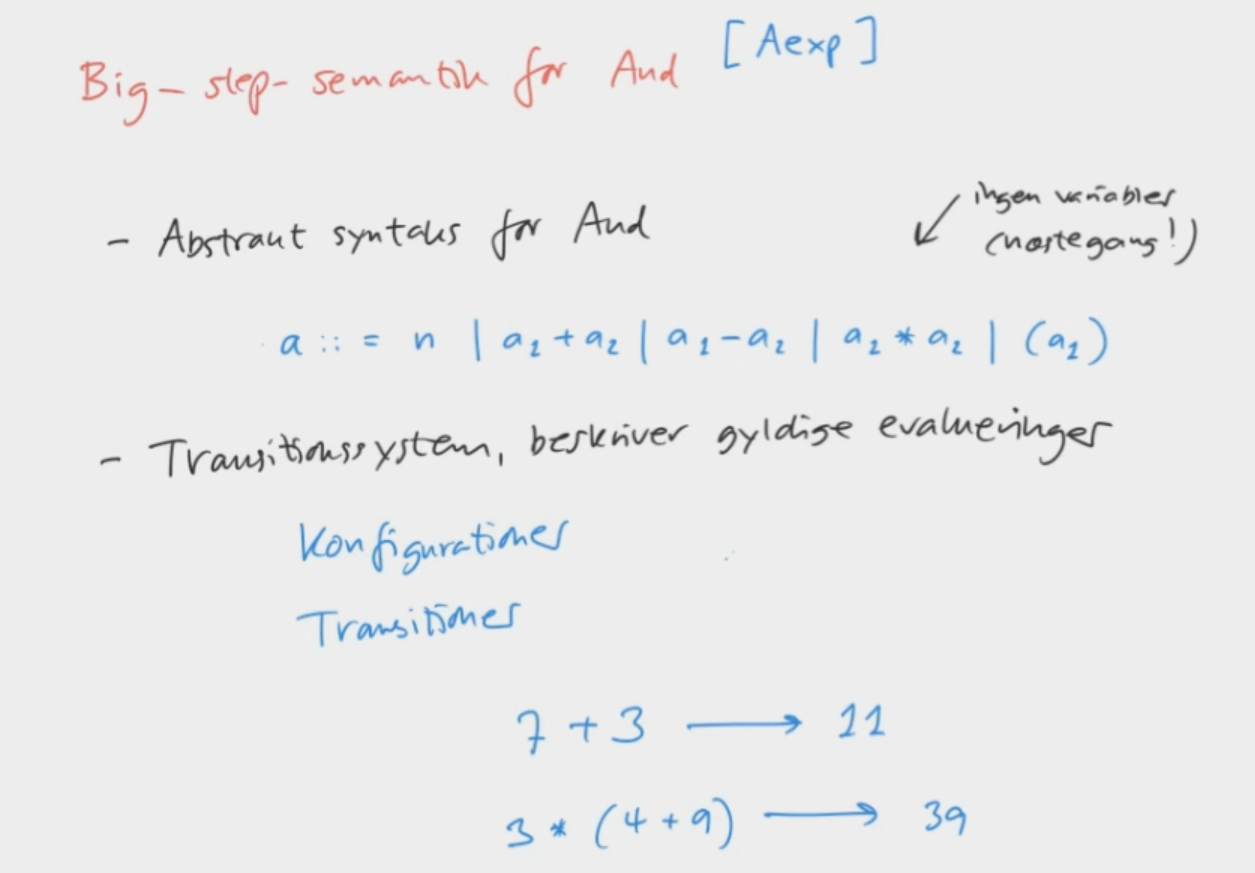 Big-step-semantik for And [Aexp]
- Abstrakt syntaks for And
ingen variabler
(næste gang!)
a ::= n | a₁+a₂ | a₁-a₂ | a₁*a₂ | (a₁)
- Transitionssystem, beskriver gyldige evalueringer
Konfigurationer
Transitioner
7 + 3 → 11
3 * (4+9) → 39